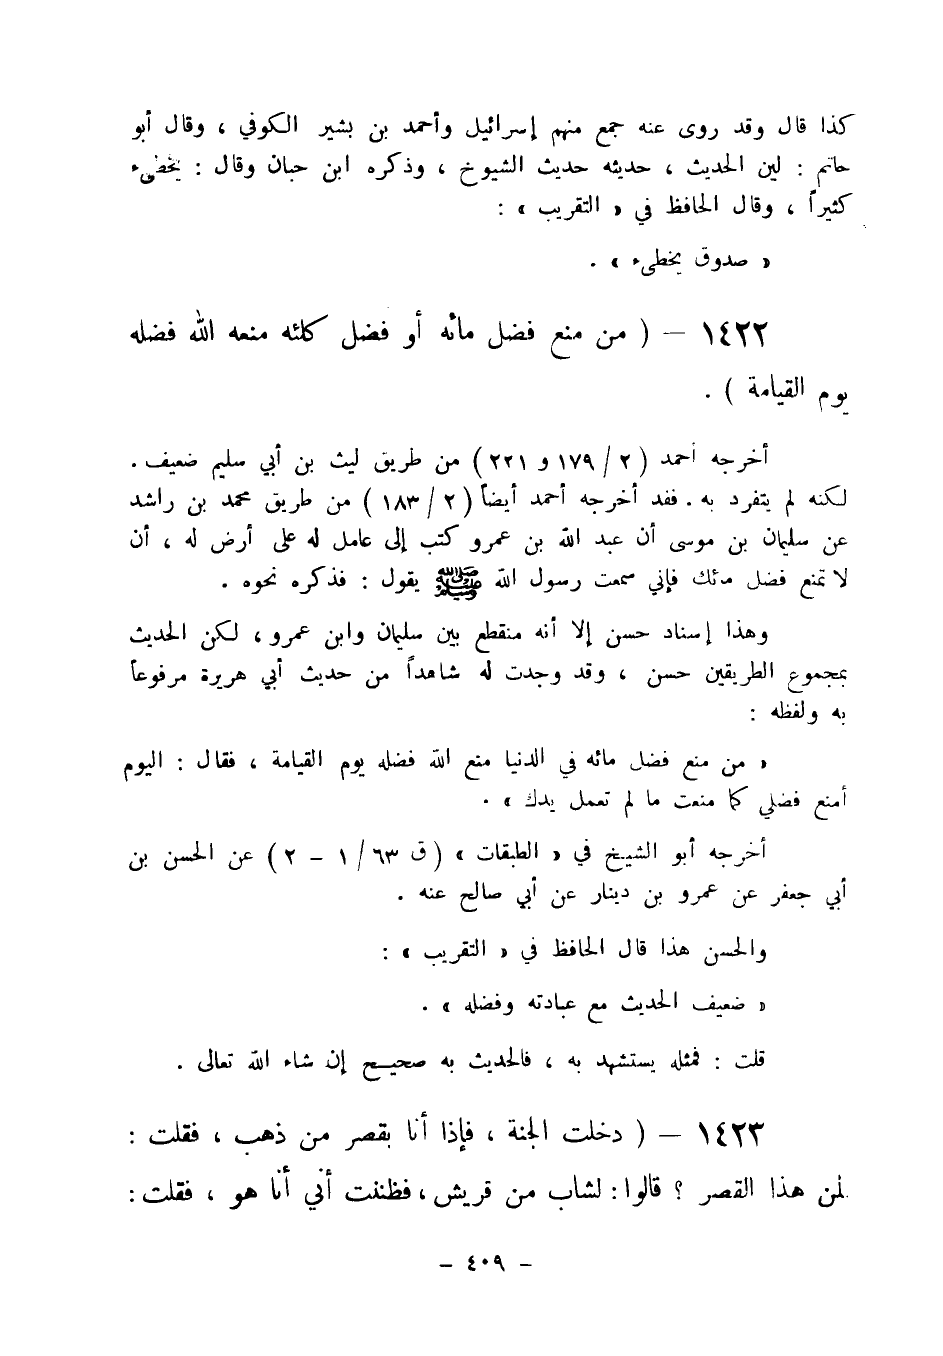 كذا قال وقد روى عنه جمع منهم إسرائيل وأحمد بن بشير الكوفي ، وقال أبو
حاتم : لين الحديث ، حديثه حديث الشيوخ ، وذكره ابن حبان وقال : يخطىء
كثيراً ، وقال الحافظ في « التقريب » :
« صدوق يخطىء » .
١٤٢٢ – ( من منع فضل مائه أو فضل كلئه منعه الله فضله
يوم القيامة ) .
أخرجه أحمد ( ٢ / ١٧٩ و ٢٢١ ) من طريق ليث بن أبي سليم ضعيف .
لكنه لم يتفرد به . فقد أخرجه أحمد أيضاً ( ٢ / ١٨٣ ) من طريق محمد بن راشد
عن سليمان بن موسى أن عبد الله بن عمرو كتب إلى عامل له على أرض له ، أن
لا تمنع فضل مائك فإني سمعت رسول الله ﷺ يقول : فذكره نحوه .
وهذا إسناد حسن إلا أنه منقطع بين سليمان وابن عمرو ، لكن الحديث
بمجموع الطريقين حسن ، وقد وجدت له شاهداً من حديث أبي هريرة مرفوعاً
به ولفظه :
« من منع فضل مائه في الدنيا منع الله فضله يوم القيامة ، فقال : اليوم
أمنع فضلي كما منعت ما لم تعمل يدك » .
أخرجه أبو الشيخ في « الطبقات » ( ق ٦٣ / ١ – ٢ ) عن الحسن بن
أبي جعفر عن عمرو بن دينار عن أبي صالح عنه .
والحسن هذا قال الحافظ في « التقريب » :
« ضعيف الحديث مع عبادته وفضله » .
قلت : فمثله يستشهد به ، فالحديث به صحيح إن شاء الله تعالى .
١٤٢٣ – ( دخلت الجنة ، فإذا أنا بقصر من ذهب ، فقلت :
لمن هذا القصر ؟ قالوا : لشاب من قريش ، فظننت أني أنا هو ، فقلت :
– ٤٠٩ –